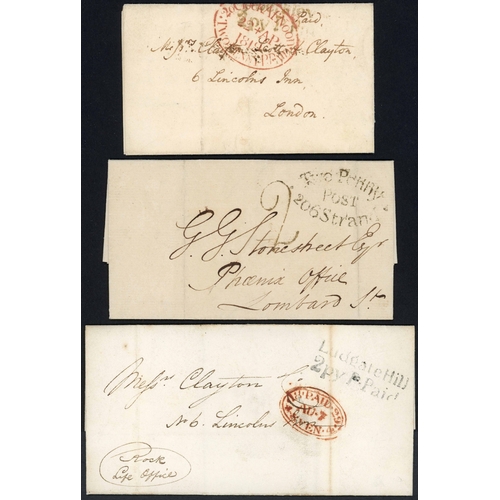 2Py
Paid
Messrs. Clayton Scott & Clayton,
6 Lincolns Inn,
London.
Two Penny
Post
206 Strand
2
G. G. Stonestreet Esqr
Phœnix Office
Lombard St.
Ludgate Hill
2py P. Paid
Messrs Clayton
No 6. Lincolns
PAID
AU 7
EVEN
Rock
Life Office